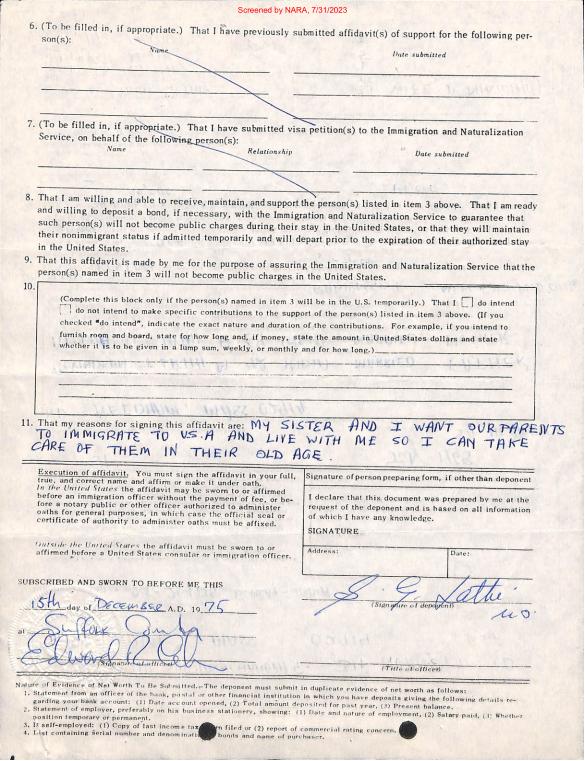 Screened by NARA, 7/31/2023
6. (To be filled in, if appropriate.) That I have previously submitted affidavit(s) of support for the following per-
son(s):
Name
Date submitted
7. (To be filled in, if appropriate.) That I have submitted visa petition(s) to the Immigration and Naturalization
Service, on behalf of the following person(s):
Name Relationship Date submitted
8. That I am willing and able to receive, maintain, and support the person(s) listed in item 3 above. That I am ready
and willing to deposit a bond, if necessary, with the Immigration and Naturalization Service to guarantee that
such person(s) will not become public charges during their stay in the United States, or that they will maintain
their nonimmigrant status if admitted temporarily and will depart prior to the expiration of their authorized stay
in the United States.
9. That this affidavit is made by me for the purpose of assuring the Immigration and Naturalization Service that the
person(s) named in item 3 will not become public charges in the United States.
10.
(Complete this block only if the person(s) named in item 3 will be in the U.S. temporarily.) That I do intend
do not intend to make specific contributions to the support of the person(s) listed in item 3 above. (If you
checked "do intend", indicate the exact nature and duration of the contributions. For example, if you intend to
furnish room and board, state for how long and, if money, state the amount in United States dollars and state
whether it is to be given in a lump sum, weekly, or monthly and for how long.)
11. That my reasons for signing this affidavit are: MY SISTER AND I WANT OUR PARENTS
TO IMMIGRATE TO U.S.A AND LIVE WITH ME SO I CAN TAKE
CARE OF THEM IN THEIR OLD AGE.
Execution of affidavit. You must sign the affidavit in your full,
true, and correct name and affirm or make it under oath.
In the United States the affidavit may be sworn to or affirmed
before an immigration officer without the payment of fee, or be-
fore a notary public or other officer authorized to administer
oaths for general purposes, in which case the official seal or
certificate of authority to administer oaths must be affixed.
Outside the United States the affidavit must be sworn to or
affirmed before a United States consular or immigration officer.
Signature of person preparing form, if other than deponent
I declare that this document was prepared by me at the
request of the deponent and is based on all information
of which I have any knowledge.
SIGNATURE
Address: Date:
SUBSCRIBED AND SWORN TO BEFORE ME THIS
15th day of DECEMBER A.D. 1975
(Signature of deponent)
at Suffolk
(Signature of official) (Title of officer)
Nature of Evidence of Net Worth To Be Submitted. The deponent must submit in duplicate evidence of net worth as follows:
1. Statement from an officer of the bank, postal or other financial institution in which you have deposits giving the following details re-
garding your bank account: (1) Date account opened, (2) Total amount deposited for past year, (3) Present balance.
2. Statement of employer, preferably on his business stationery, showing: (1) Date and nature of employment, (2) Salary paid, (3) Whether
position temporary or permanent.
3. If self-employed: (1) Copy of last income tax filed or (2) report of commercial rating concern.
4. List containing serial number and denomination bonds and name of purchaser.